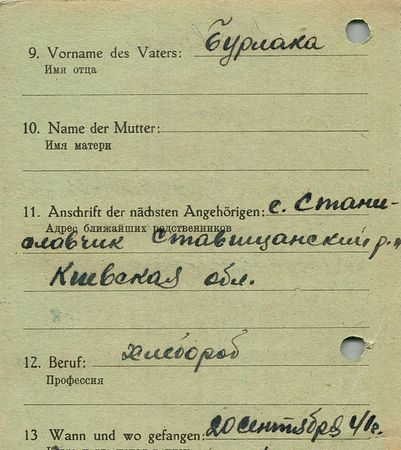 9. Vorname des Vaters: Бурлака
Имя отца
10. Name der Mutter:
Имя матери
11. Anschrift der nächsten Angehörigen: с. Стани-
Адрес ближайших родственников
славчик Ставищанский р.н
Киевская обл.
12. Beruf: хлебороб
Профессия
13 Wann und wo gefangen: 20 сентября 41г.